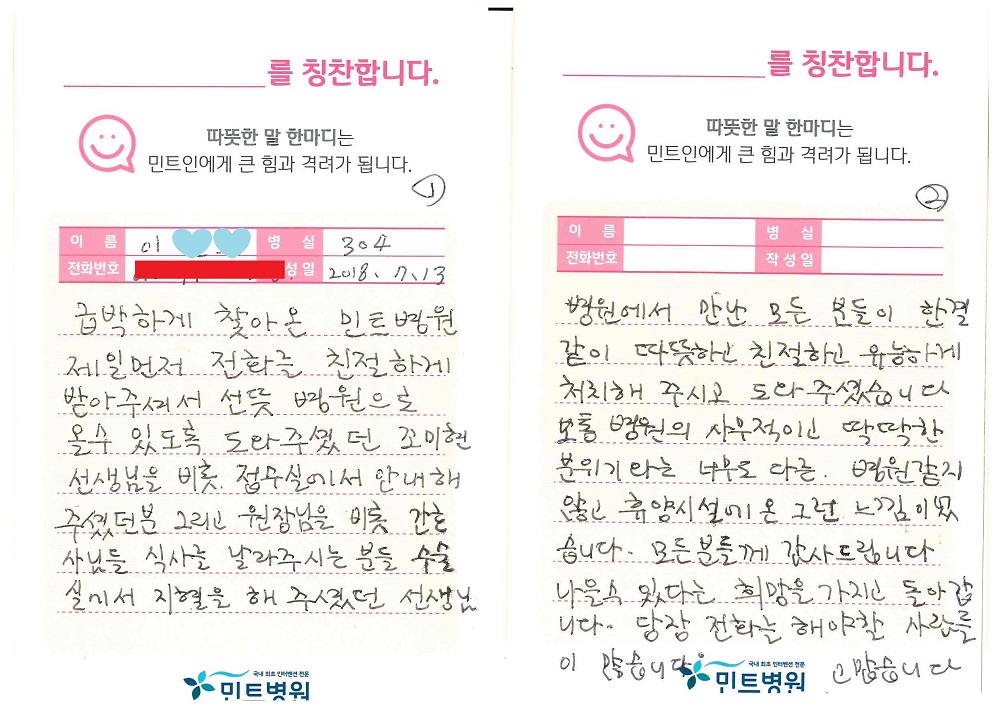 를 칭찬합니다.
따뜻한 말 한마디는
민트인에게 큰 힘과 격려가 됩니다.
1
이 름 이 병 실 304
전화번호 성일 2018. 7. 13
급박하게 찾아온 민트병원
제일먼저 전화를 친절하게
받아주셔서 선뜻 병원으로
올수 있도록 도와주셨던 꼬미현
선생님을 비롯 접수실에서 안내해
주셨던분 그리고 원장님을 비롯 간호
사님들 식사를 날라주시는 분들 수술
실에서 지혈을 해 주셨던 선생님
국내 최초 인터벤션 전문
민트병원
를 칭찬합니다.
따뜻한 말 한마디는
민트인에게 큰 힘과 격려가 됩니다.
2
이 름 병 실
전화번호 작성일
병원에서 만난 모든 분들이 한결
같이 따뜻하고 친절하고 유능하게
처치해 주시고 도와주셨습니다
보통 병원의 사무적이고 딱딱한
분위기와는 너무도 다른. 병원같지
않고 휴양시설에 온 그런 느낌이였
습니다. 모든분들께 감사드립니다
나을수 있다는 희망을 가지고 돌아갑
니다. 당장 전화를 해야할 사람들
이 많습니다. 고맙습니다
국내 최초 인터벤션 전문
민트병원